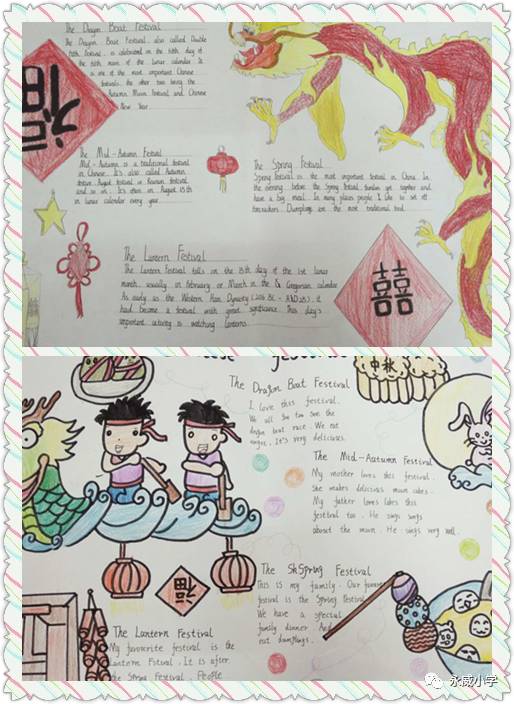 The Dragon Boat Festival
The Dragon Boat Festival, also called Double
Fifth Festival, is celebrated on the fifth day of
the fifth moon of the lunar calendar. It
is one of the most important Chinese
festivals, the other two being the
Autumn Moon Festival and Chinese
New Year
福
The Mid-Autumn Festival
Mid-Autumn is a traditional festival
in Chinese. It's also called Autumn
festival August festival or Reunion festival
and so on. It's often in August 15th
in lunar calendar every year.
The Spring Festival
Spring Festival is the most important festival in China. In
the evening before the Spring Festival families get together and
have a big meal. In many places people like to set off
firecrackers. Dumplings are the most traditional food.
The Lantern Festival
The Lantern Festival falls on the 15th day of the 1st lunar
month, usually in February or March in the Gregorian calendar.
As early as the Western Han Dynasty (206 BC - AD 25), it
had become a festival with great significance. This day's
important activity is watching lanterns.
囍
中秋
The Dragon Boat Festival
I love this festival.
We all see the
dragon boat race. We eat
It's very delicious.
The Mid-Autumn Festival
My mother loves this festival.
She makes delicious moon cakes.
My father loves this
festival too. He sings songs
about the moon. He sings very well.
福
The Spring Festival
This is my family. Our
festival is the Spring Festival
We have a special
family dinner. And
eat dumplings.
The Lantern Festival
My favourite festival is the
Lantern Fstival. It is after
the Spring Festival. People
永威小学